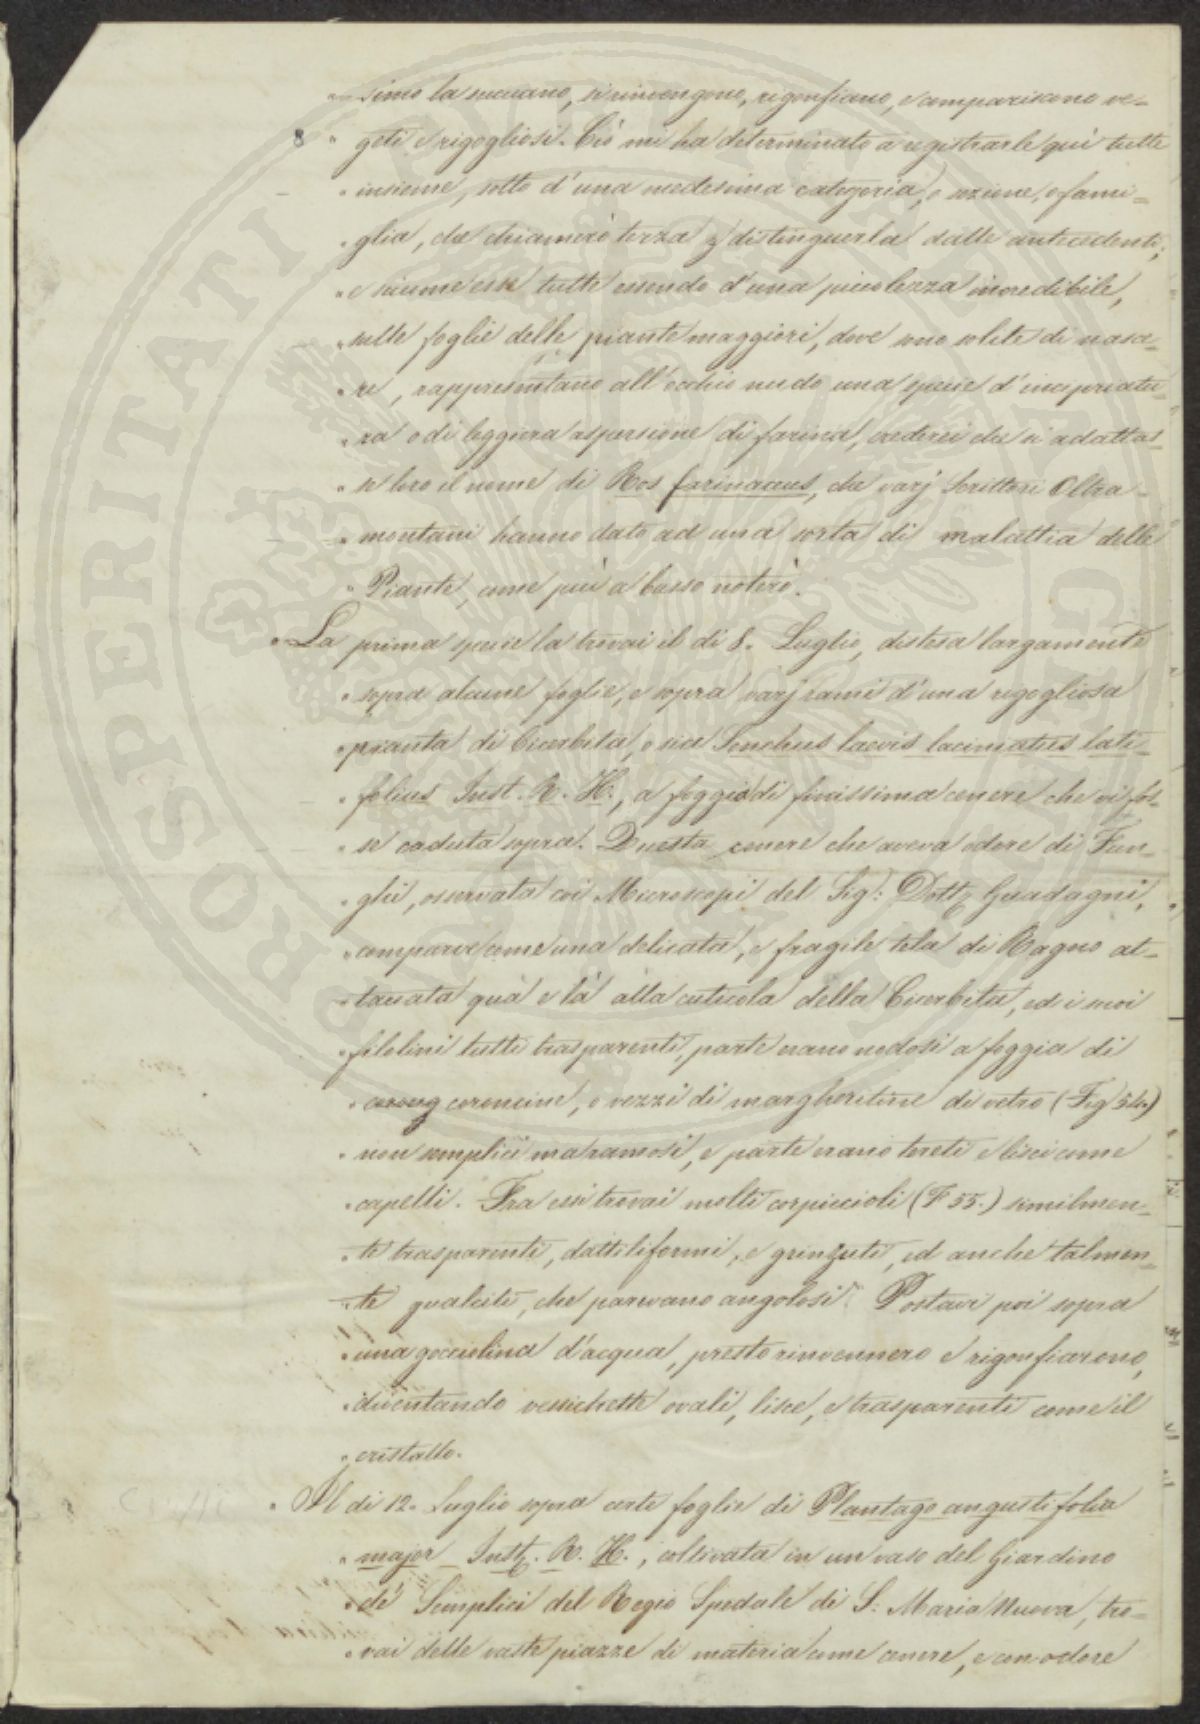 " simo la succiano, si rinvengono, rigonfiano, e compariscono ve-
8 " geti e rigogliosi. Ciò mi ha determinato a registrarle quì tutte
" insieme, sotto d'una medesima categoria, o sezione, o fami-
" glia, che chiamerò terza p distinguerla dalle antecedenti;
" e siccome esse tutte essendo d'una piccolezza incredibile,
" sulle foglie delle piante maggiori, dove sono solite di nasce-
" re, rappresentano all'occhio nudo una specie d'incipriatu-
" ra o di leggiera aspersione di farina, crederei che si adattas-
" se loro il nome di Ros farinaceus, che varj Scrittori Oltra-
" montani hanno dato ad una sorta di malattia delle
" Piante, come più a basso noterò.
" La prima specie la trovai il di 8. Luglio, distesa largamente
" sopra alcune foglie, e sopra varj rami d'una rigogliosa
" pianta di Cicerbita, o sia Sonchus laevis laciniatus lati-
" folius Inst. R. H., a foggia di finissima cenere che vi fos-
" se caduta sopra. Questa cenere che aveva odore di Fun-
" ghi, osservata coi Microscopi del Sig: Dott. Guadagni,
" comparve come una delicata, e fragile tela di Ragno at-
" taccata quà e là alla cuticola della Cicerbita, ed i suoi
" filolini tutti trasparenti, parte erano nodosi a foggia di
" coroncine, o vezzi di margheritine di vetro (Fig 54.)
" non semplici ma ramosi, e parte erano tereti e lisci come
" capelli. Fra essi trovai molti corpiccioli (F 55.) similmen-
" te trasparenti, dattiliformi, e grinzuti, ed anche talmen-
" te gualciti, che parevano angolosi. Postavi poi sopra
" una gocciolina d'acqua, presto rinvennero e rigonfiarono,
" diventando vessichette ovali, lisce, e trasparenti come il
" cristallo.
" Il di 12. Luglio sopra certe foglie di Plantago angustifolia
" major Inst. R. H., coltivata in un vaso del Giardino
" de' Semplici del Regio Spedale di S. Maria Nuova, tro-
" vai delle vaste piazze di materia come cenere, e con odore
PROSPERITATI